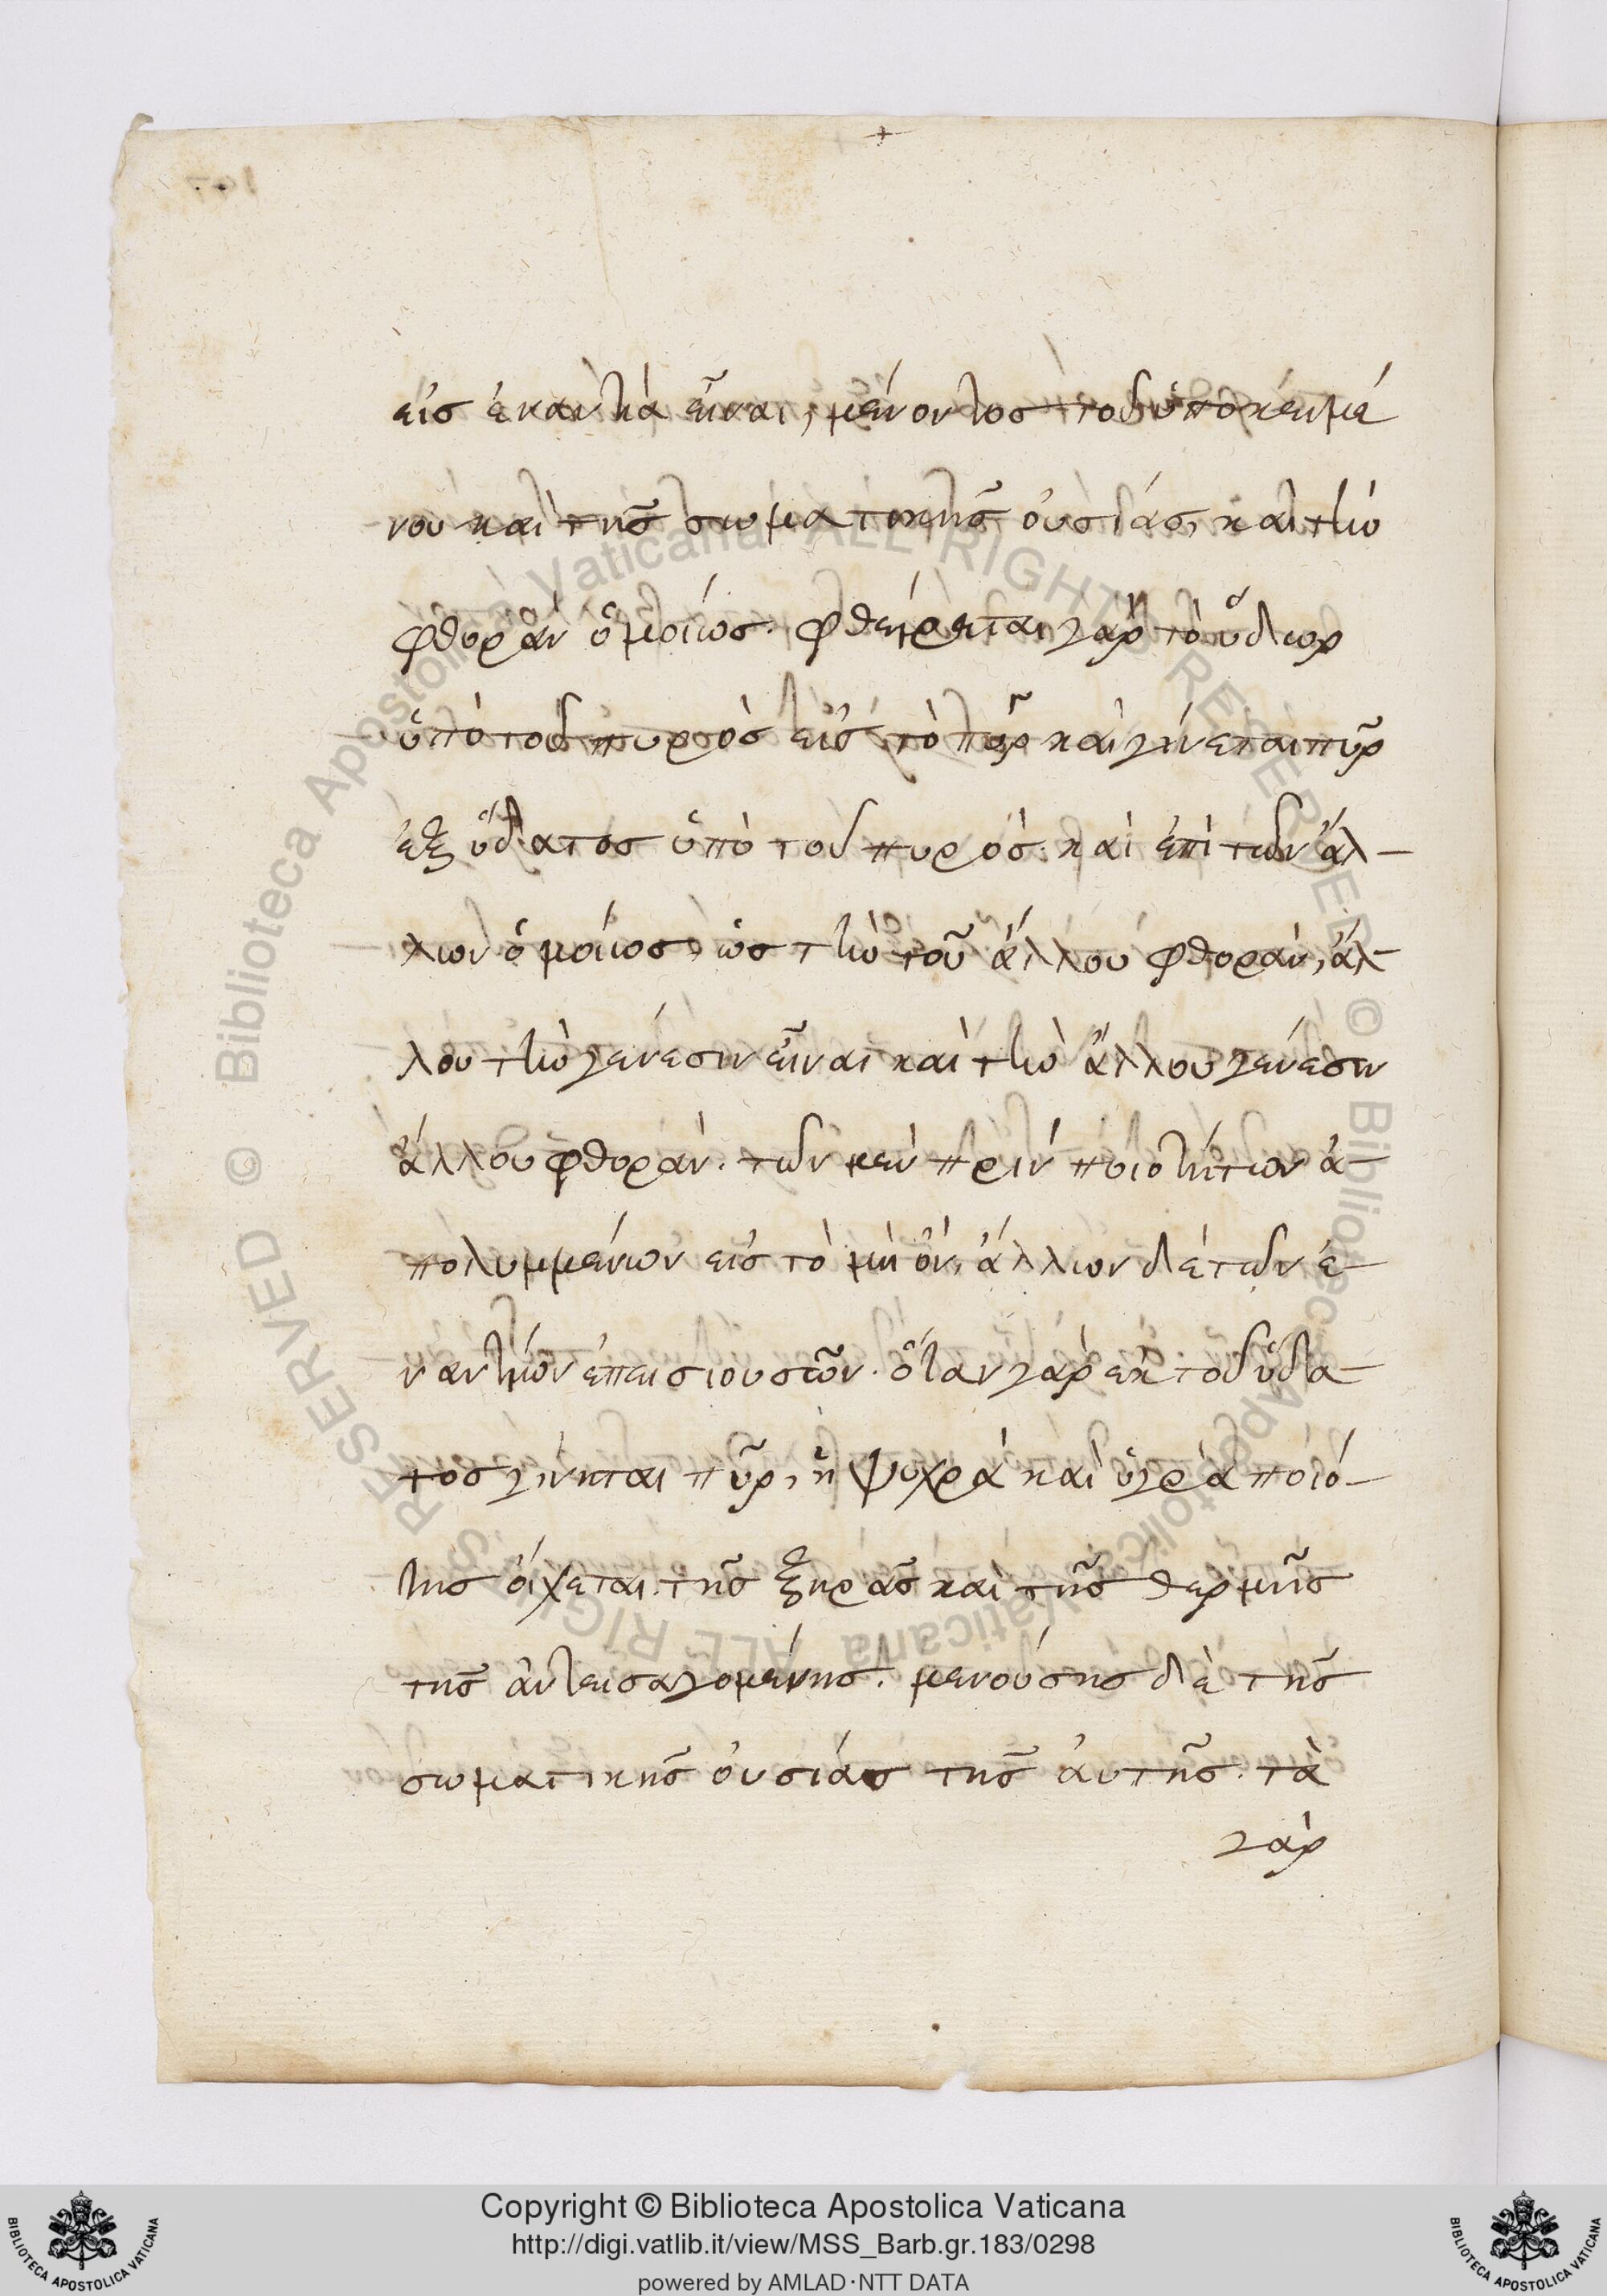 +
εἰς ἐναντία εἶναι, μένοντος τοῦ ὑποκειμέ
νου καὶ τῆς σωματικῆς οὐσίας, καὶ τὴν
φθορὰν ὁμοίως. φθείρεται γὰρ τὸ ὕδωρ
ὑπὸ τοῦ πυρὸς εἰς τὸ πῦρ καὶ γίνεται πῦρ
ἐξ ὕδατος ὑπὸ τοῦ πυρός. καὶ ἐπὶ τῶν ἄλ-
λων ὁμοίως, ὡς τὴν τοῦ ἄλλου φθορὰν, ἄλ-
λου τὴν γένεσιν εἶναι καὶ τὴν ἄλλου γένεσιν
ἄλλου φθοράν. τῶν μὲν πρὶν ποιοτήτων ἀ-
πολυμμένων εἰς τὸ μὴ ὄν, ἄλλων δὲ τῶν ἐ-
ναντίων ἐπεισιουσῶν. ὅταν γὰρ ἐκ τοῦ ὕδα-
τος γίνηται πῦρ, ἡ ψυχρὰ καὶ ὑγρὰ ποιό-
της οἴχεται. τῆς ξηρᾶς καὶ τῆς θερμῆς
τῆς ἀντεισαγομένης. μενούσης δὲ τῆς
σωματικῆς οὐσίας τῆς αὐτῆς. τὰ
γὰρ
Copyright © Biblioteca Apostolica Vaticana
http://digi.vatlib.it/view/MSS_Barb.gr.183/0298
powered by AMLAD·NTT DATA